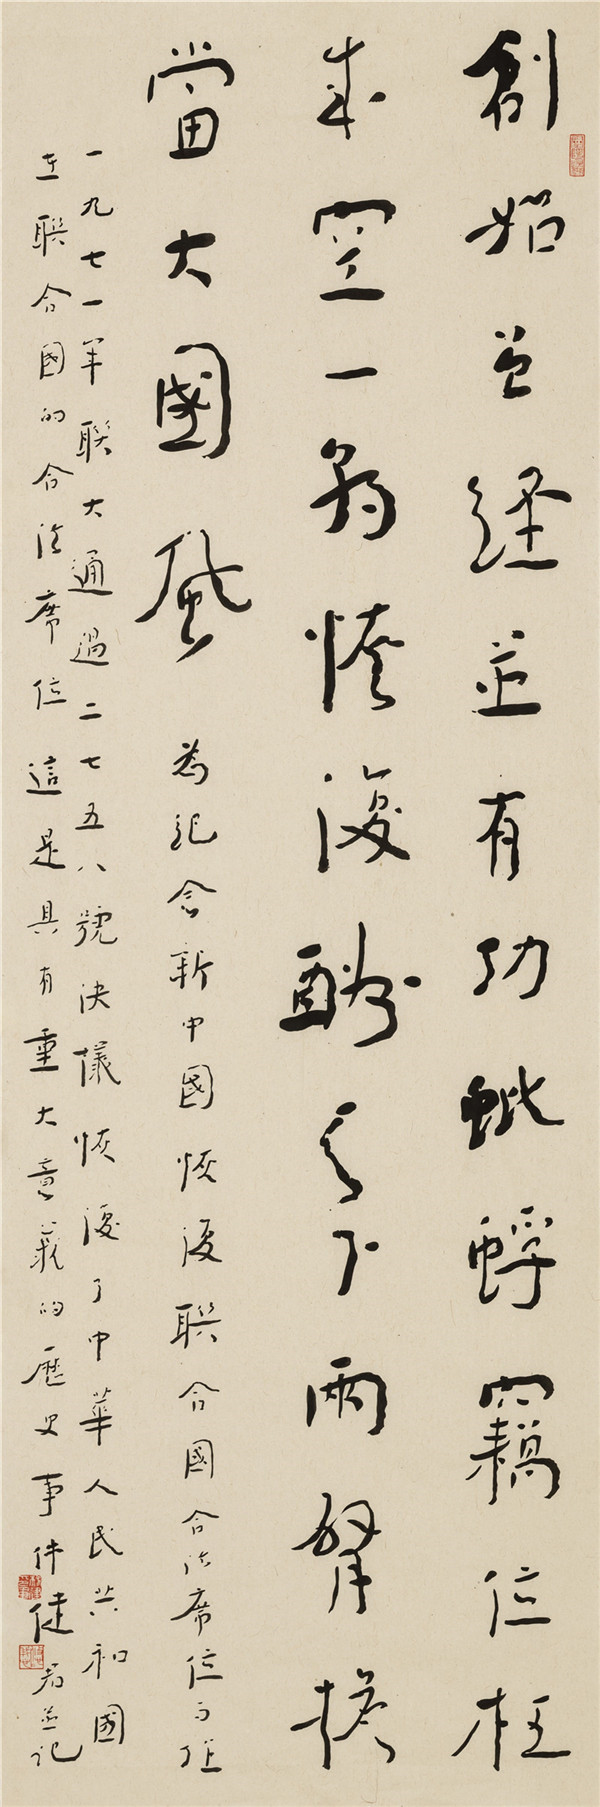 創始曾經並有功蚍蜉竊位枉
成空一朝恢復酬天下兩臂擔
當大國風為紀念新中國恢復聯合國合法席位而作
一九七一年聯大通過二七五八號決議恢復了中華人民共和國
在聯合國的合法席位這是具有重大意義的歷史事件健君並記